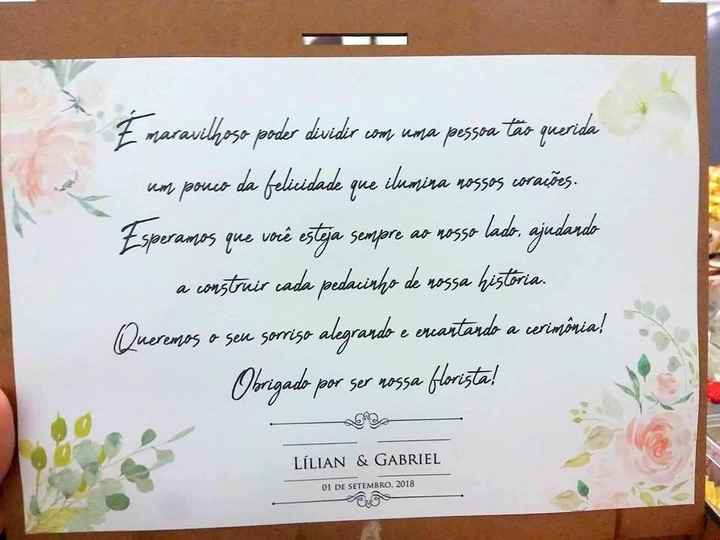 É maravilhoso poder dividir com uma pessoa tão querida
um pouco da felicidade que ilumina nossos corações.
Esperamos que você esteja sempre ao nosso lado, ajudando
a construir cada pedacinho de nossa história.
Queremos o seu sorriso alegrando e encantando a cerimônia!
Obrigado por ser nossa florista!
LÍLIAN & GABRIEL
01 DE SETEMBRO, 2018